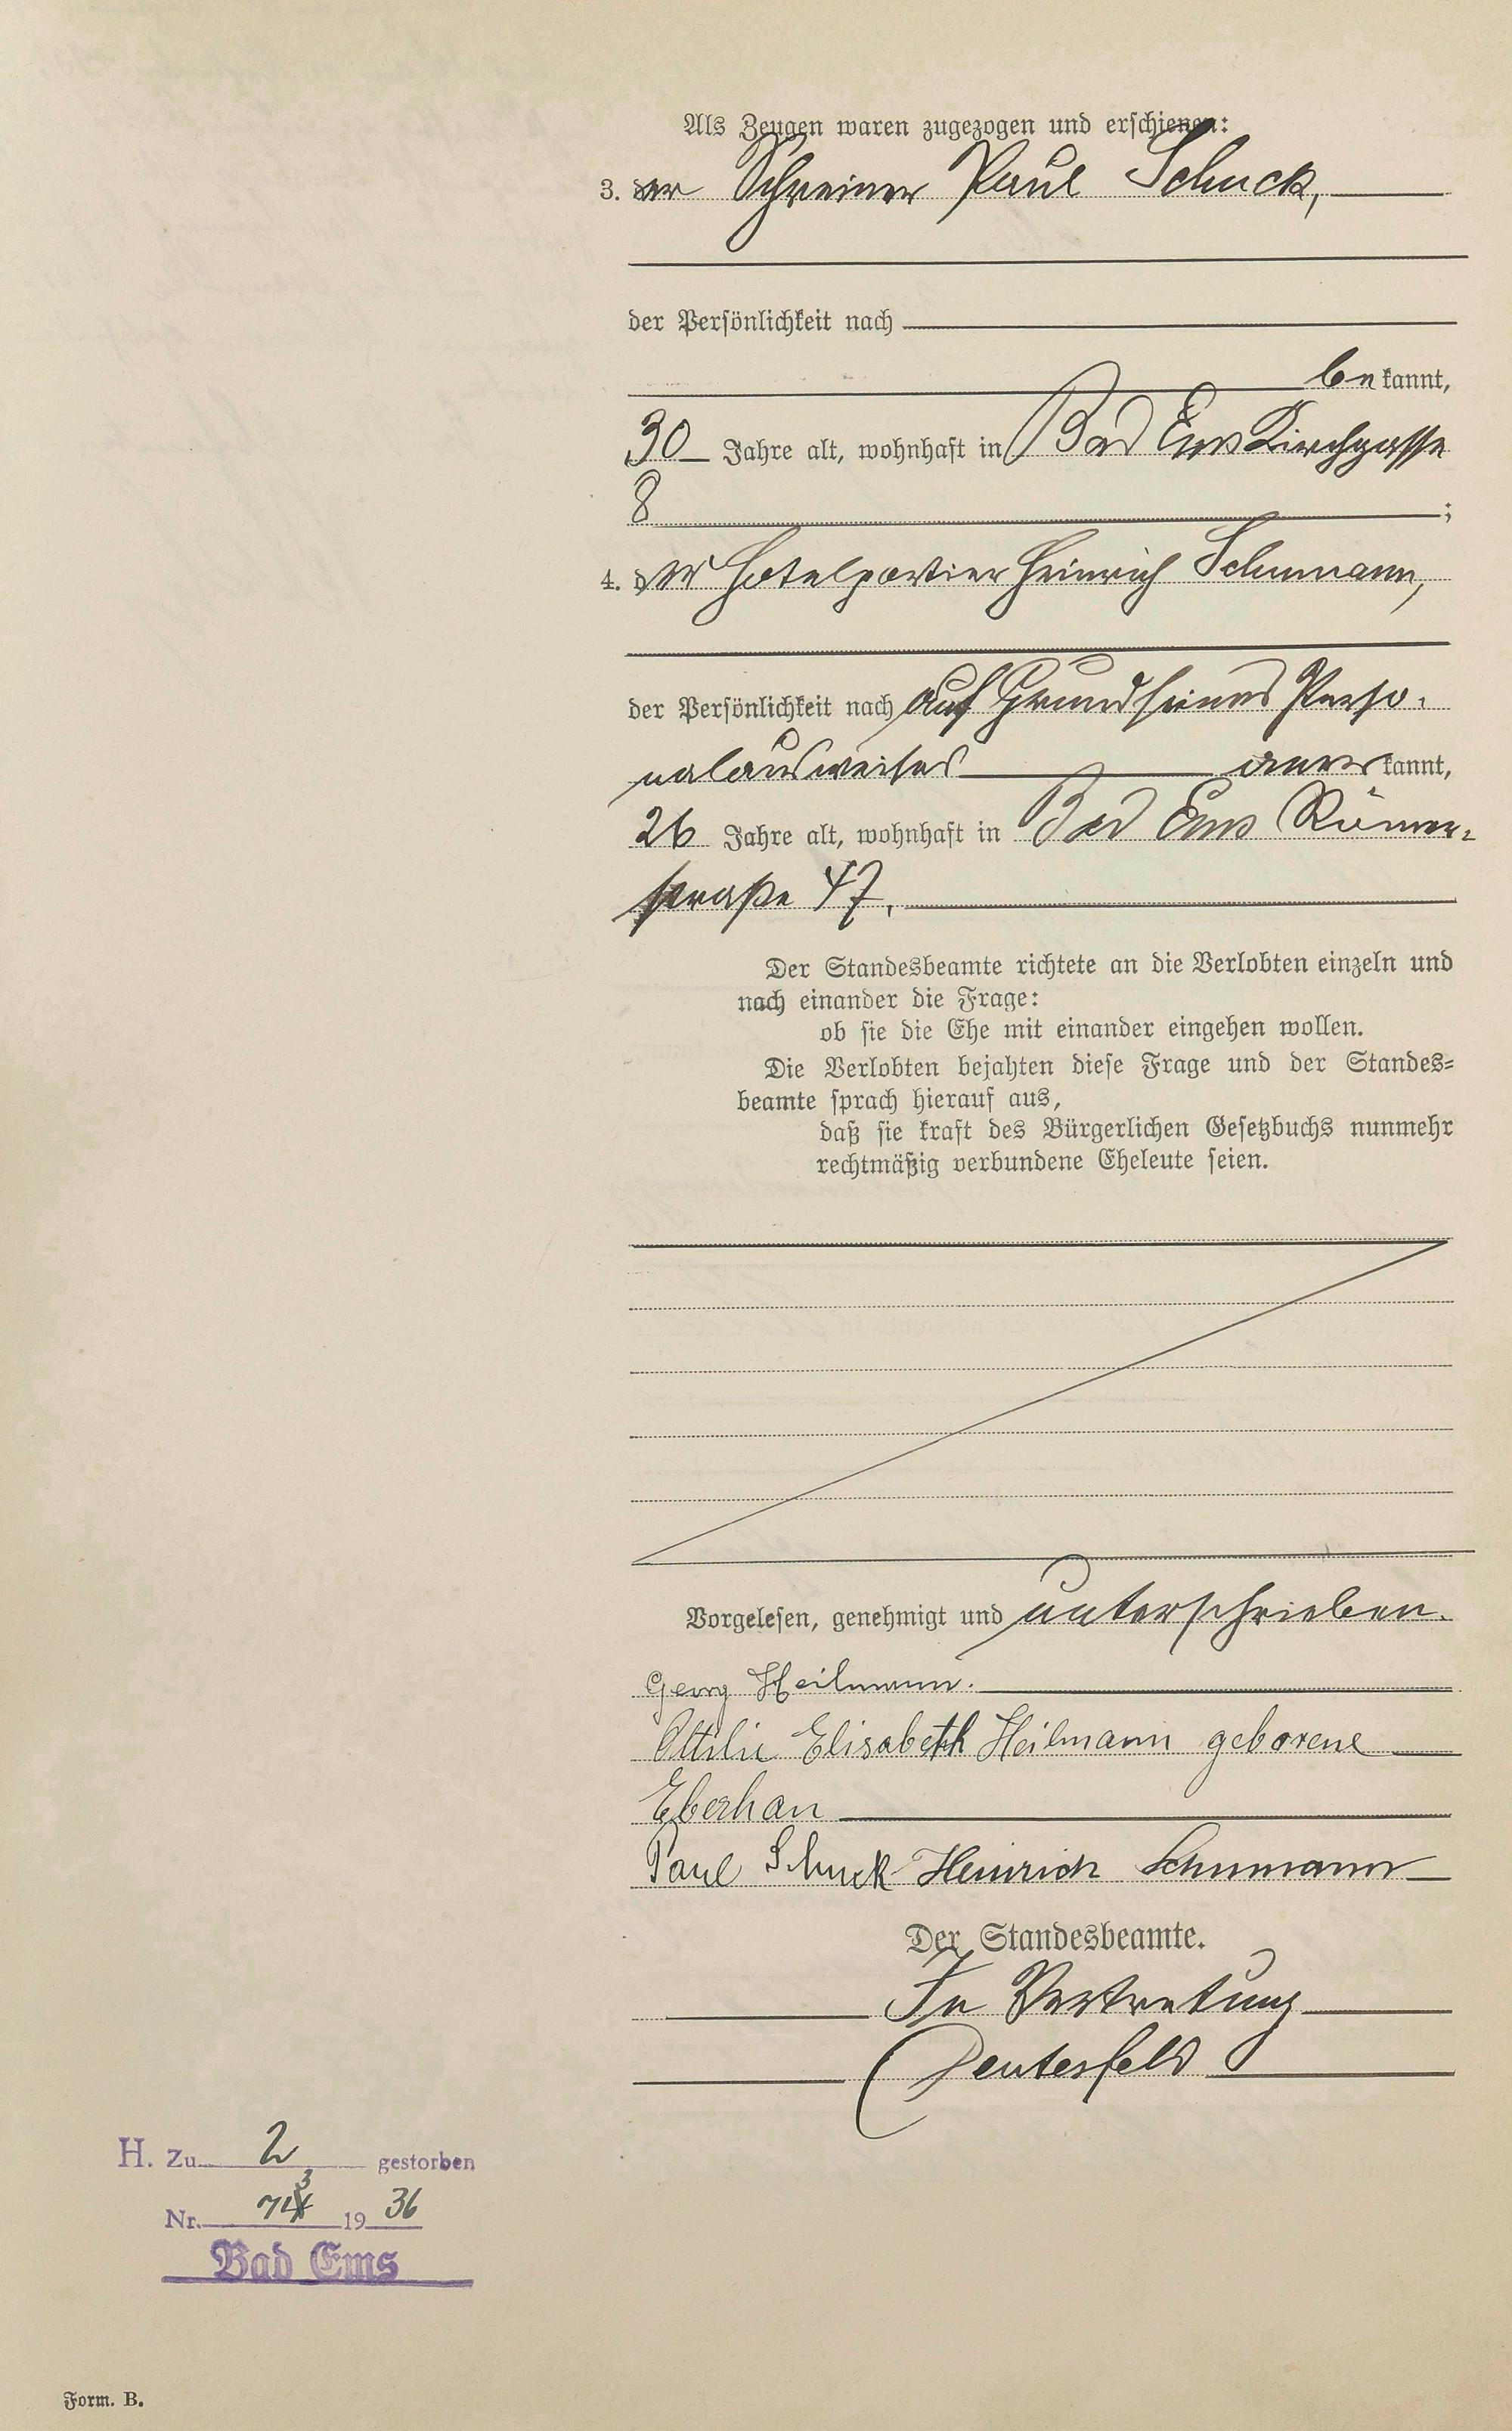 Als Zeugen waren zugezogen und erschienen:
3. der Schreiner Paul Schuck,
der Persönlichkeit nach
be kannt,
30 Jahre alt, wohnhaft in Bad Ems Kirchgasse
8 ;
4. der Hotelportier Heinrich Schumann,
der Persönlichkeit nach auf Grund seines Perso-
nalausweises aner kannt,
26 Jahre alt, wohnhaft in Bad Ems Römer-
straße 47.
Der Standesbeamte richtete an die Verlobten einzeln und
nach einander die Frage:
ob sie die Ehe mit einander eingehen wollen.
Die Verlobten bejahten diese Frage und der Standes-
beamte sprach hierauf aus,
daß sie kraft des Bürgerlichen Gesetzbuchs nunmehr
rechtmäßig verbundene Eheleute seien.
Vorgelesen, genehmigt und unterschrieben.
Georg Heilmann.
Ottilie Elisabeth Heilmann geborene
Eberhan
Paul Schuck Heinrich Schumann
Der Standesbeamte.
In Vertretung
Deutesfeld
H. Zu 2 gestorben
Nr. 19 36
Bad Ems
Form. B.